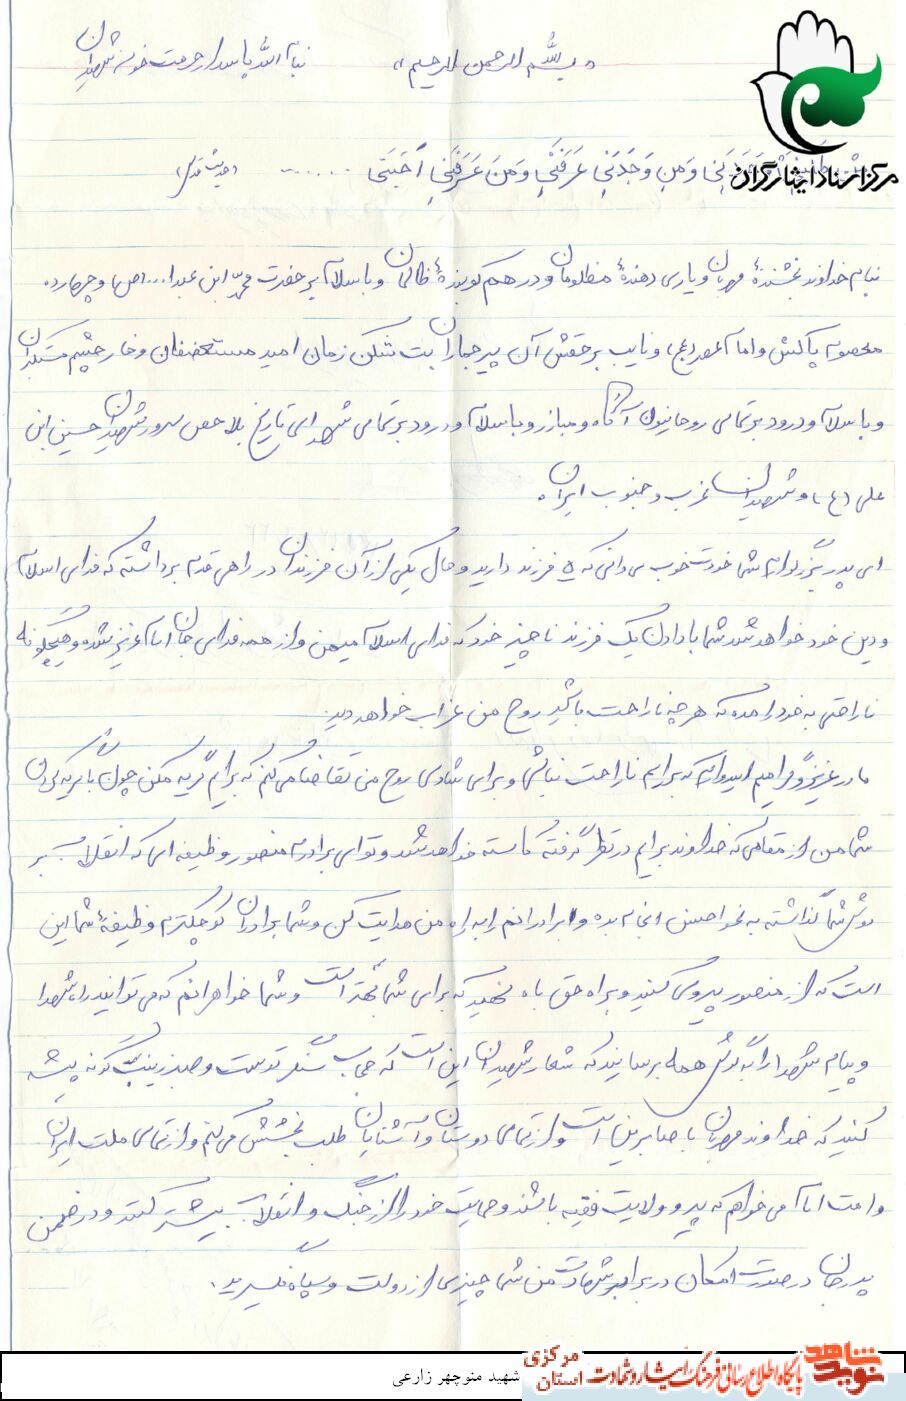 بنام الله پاسدار حرمت خون شهیدان
«بسم الله الرحمن الرحیم»
مرکز اسناد ایثارگران
وَ مَن وَجَدَنی عَرَفَنی وَ مَن عَرَفَنی اَحَبَنی ........ (حدیث قدسی)
بنام خداوند بخشندهٔ مهربان و یاری دهندهٔ مظلومان و در هم کوبندهٔ ظالمان و با سلام بر حضرت محمد ابن عبدا... (ص) و چهارده
معصوم پاکش و امام عصر (عج) و نایب برحقش آن پیر جماران بت شکن زمان امید مستضعفان و خار چشم مستکبران
و با سلام و درود بر تمامی روحانیون آگاه و مبارز و با سلام و درود بر تمامی شهدای تاریخ بلاخص سرور شهیدان حسین ابن
علی (ع) و شهیدان غرب و جنوب ایران.
ای پدر بزرگوارم شما خودت خوب می دانی که ۵ فرزند دارید و حال یکی از آن فرزندان در راهی قدم برداشته که فدای اسلام
و دین خود خواهد شد شما با دادن یک فرزند ناچیز خود که فدای اسلام میهن و از همه فدای جان امام عزیز شده و هیچگونه
ناراحتی به خود راه مده که هر چه ناراحت باشید روح من عذاب خواهد دید.
مادر عزیز و گرامیم امیدوارم که برایم ناراحت نباشی و برای شادی روح من تقاضا می کنم که برایم گریه مکن چون با گریه کردن
شما من از مقامی که خداوند برایم در نظر گرفته کاسته خواهد شد و تو ای برادرم منصور وظیفه ای که انقلاب بر
دوش شما گذاشته به نحو احسن انجام بده و برادرانم را به راه من هدایت کن و شما برادران کوچکترم وظیفهٔ شما این
است که از منصور پیروی کنید و براه حق که برای شما بهتر است و شما خواهرانم که می توانید راه شهدا
و پیام شهدا را به گوش همه برسانید که شعار شهیدان این است که حجاب سنگر توست و صبر زینب گونه پیشه
کنید که خداوند مهربان با صابرین است و از تمامی دوستان و آشنایان طلب بخشش می کنم و از تمامی ملت ایران
و امت امام می خواهم که پیرو ولایت فقیه باشند و حمایت خود را از جنگ و انقلاب بیشتر کنند و در ضمن
پدر جان در صورت امکان در برابر شهادت من شما چیزی از دولت و سپاه نگیرید.
شهید منوچهر زارعی
نوید شاهد
پایگاه اطلاع رسانی فرهنگ ایثار و شهادت
استان مرکزی